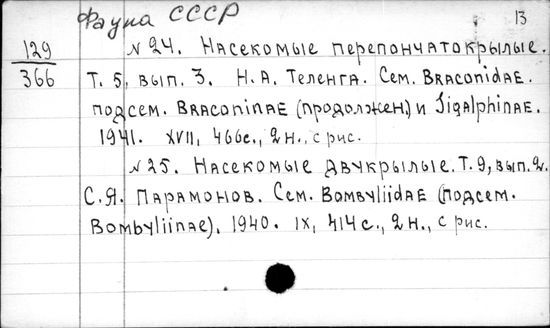 Фауна СССР
13
129
366
N 24. Насекомые перепончатокрылые.
Т. 5, вып. 3. Н.А. Теленга. Сем. Braconidae.
подсем. Braconinae (продолжен.) и Sigalphinae.
1941. XVII, 466 с., 2 н., с рис.
N 25. Насекомые двукрылые. Т. 9, вып. 2.
С.Я. Парамонов. Сем. Bombyliidae (подсем.
Bombyliinae). 1940. IX, 414 с., 2 н., с рис.